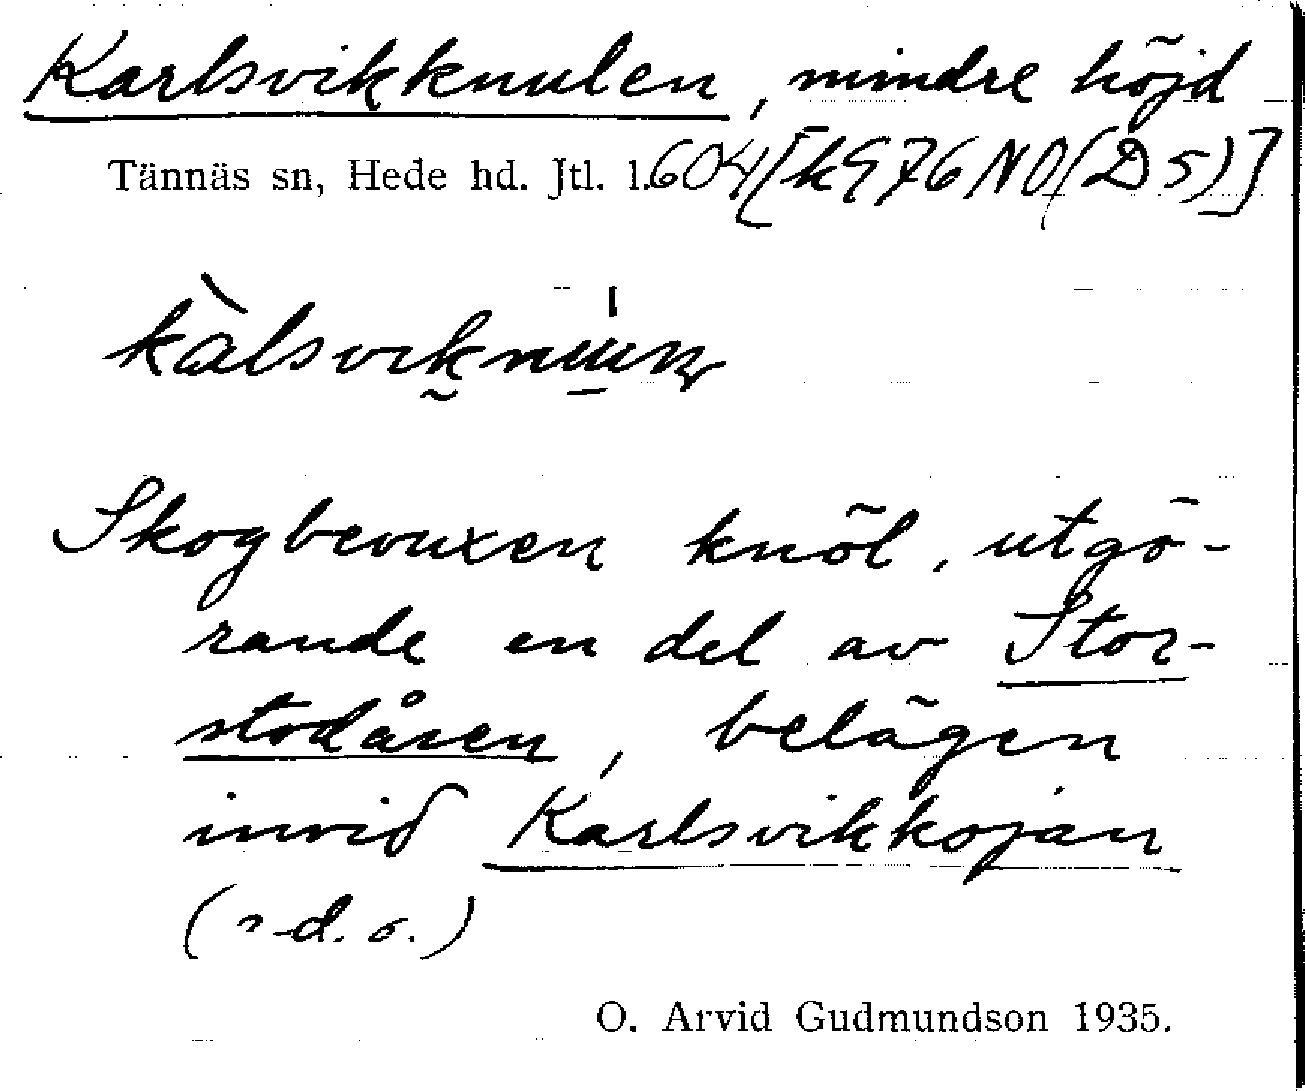 Karlsvikknulen, mindre höjd
Tännäs sn, Hede hd. Jtl. l. 604 [k976NO(D5)]
Skogbevuxen knöl, utgö-
rande en del av Stor-
stodåsen, belägen
invid Karlsvikkojan
(s.d.o.)
O. Arvid Gudmundson 1935.